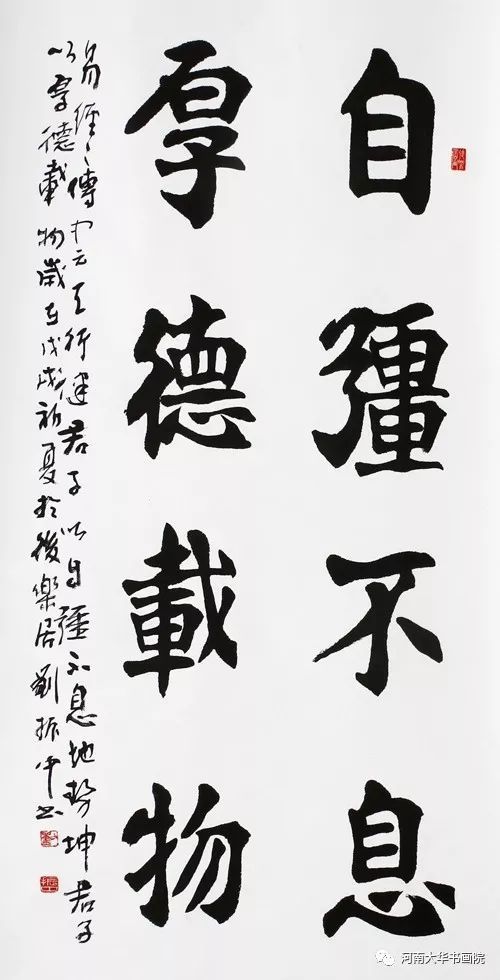 自彊不息
厚德載物
易經之傳中云天行健君子以自彊不息地勢坤君子
以厚德載物歲在戊戌初夏於後樂居劉振中書
河南大华书画院